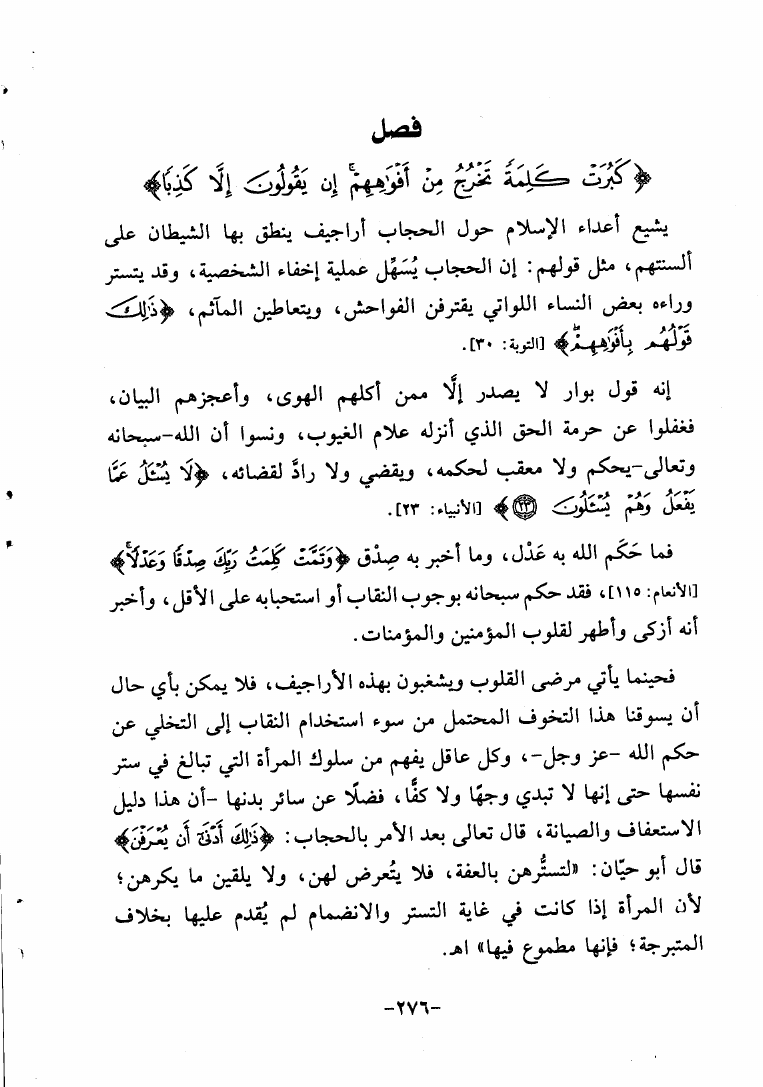 فصل
﴿كَبُرَتْ كَلِمَةً تَخْرُجُ مِنْ أَفْوَٰهِهِمْ ۚ إِن يَقُولُونَ إِلَّا كَذِبًا﴾
يشيع أعداء الإسلام حول الحجاب أراجيف ينطق بها الشيطان على
ألسنتهم، مثل قولهم: إن الحجاب يُسَهِّل عملية إخفاء الشخصية، وقد يتستر
وراءه بعض النساء اللواتي يقترفن الفواحش، ويتعاطين المآثم، ﴿ذَٰلِكَ
قَوْلُهُم بِأَفْوَٰهِهِمْ ۖ﴾ [التوبة: ٣٠].
إنه قول بوار لا يصدر إلَّا ممن أكلهم الهوى، وأعجزهم البيان،
فغفلوا عن حرمة الحق الذي أنزله علام الغيوب، ونسوا أن الله-سبحانه
وتعالى-يحكم ولا معقب لحكمه، ويقضي ولا رادَّ لقضائه، ﴿لَا يُسْـَٔلُ عَمَّا
يَفْعَلُ وَهُمْ يُسْـَٔلُونَ ٢٣﴾ [الأنبياء: ٢٣].
فما حَكَم الله به عَدْل، وما أخبر به صِدْق ﴿وَتَمَّتْ كَلِمَتُ رَبِّكَ صِدْقًا وَعَدْلًا ۚ﴾
[الأنعام: ١١٥]، فقد حكم سبحانه بوجوب النقاب أو استحبابه على الأقل، وأخبر
أنه أزكى وأطهر لقلوب المؤمنين والمؤمنات.
فحينما يأتي مرضى القلوب ويشغبون بهذه الأراجيف، فلا يمكن بأي حال
أن يسوقنا هذا التخوف المحتمل من سوء استخدام النقاب إلى التخلي عن
حكم الله -عز وجل-، وكل عاقل يفهم من سلوك المرأة التي تبالغ في ستر
نفسها حتى إنها لا تبدي وجهًا ولا كفًّا، فضلًا عن سائر بدنها -أن هذا دليل
الاستعفاف والصيانة، قال تعالى بعد الأمر بالحجاب: ﴿ذَٰلِكَ أَدْنَىٰٓ أَن يُعْرَفْنَ﴾
قال أبو حيّان: «لتستُّرهن بالعفة، فلا يتُعرض لهن، ولا يلقين ما يكرهن؛
لأن المرأة إذا كانت في غاية التستر والانضمام لم يُقدم عليها بخلاف
المتبرجة؛ فإنها مطموع فيها» اهـ.
-٢٧٦-